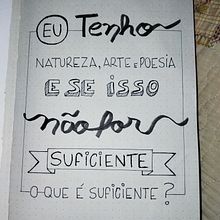 EU Tenho
NATUREZA, ARTE E POESIA
E SE ISSO
não for
SUFICIENTE
O QUE É SUFICIENTE?